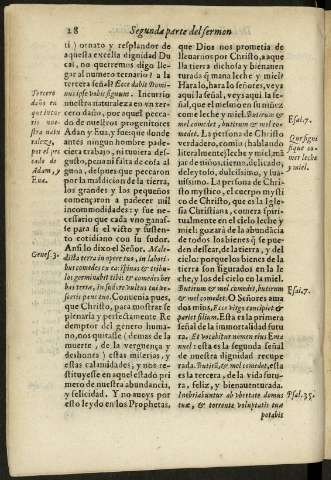 28
Segunda parte del sermon
ti) ornato y resplandor de
aquesta excelsa dignidad Du
cal, no queremos oigo lle-
gar al numero ternario? a la
tercera señal? Ecce dabit Domi-
nus ipse vobis signum. Incurrio
nuestra naturaleza en vn ter-
cero daño, por aquel pecca-
do de nuestros progenitores
Adan y Eua, y fue que donde
antes ningun hombre pade-
ciera trabajo, ni tuuiera des-
gusto, pena ni falta de cosa al
guna, despues que peccaron
por la maldicion de la tierra,
los grandes y los pequeños
començaron a padecer mil
incommodidades: y fue ne-
cessario que cada vno ganas-
se para si el victo y susten-
to cotidiano con su sudor.
Assi lo dixo el Señor. Male-
dicta terra in opere tuo, in labori-
bus comedes ex ea: spinas & tribu-
los germinabit tibi & comedes her
bas terrae, in sudore vultus tui ves-
ceris pane tuo. Conuenia pues,
que Christo, para mostrarse
plenaria y perfectamente Re
demptor del genero huma-
no, nos quitasse (demas de la
muerte, de la verguença y
deshonra) estas miserias, y
estas calamidades, y nos re-
stituyesse en aquel estado pri
mero de nuestra abundancia,
y felicidad. Y no aueys por
esto leydo en los Prophetas,
Tercero
daño en
que incur
rio nue-
stra natu
raleza,
por el pec
cado de
Adam, y
Eua.
Genes. 3.
que Dios nos prometia de
llenarnos por Christo, a aquel
la tierra dichosa y bienauen
turada q̃ mana leche y miel?
Hara lo, hara lo señores, vey a
aqui la señal, vey a aqui la se-
ñal, que el mesmo en su niñez
come leche y miel. Butirum &
mel comedet, butirum & mel co-
medet. La persona de Christo
verdadero, comio (hablando
literalmente) leche y miel, mã
jar de niños, tierno, delicado,
deleytoso, dulcissimo, y sua-
uissimo. La persona de Chri-
sto mystico, el cuerpo mysti
co de Christo, que es la Igle-
sia Christiana, comera spiri-
tualmente en el cielo leche y
miel: gozará de la abundãcia
de todos los bienes q̃ se pue-
den dessear, de la tierra, y del
cielo: porque los bienes de la
tierra son figurados en la le
che, y los del cielo en la miel.
Butirum & mel comedet, butirum
& mel comedet. O Señores ama
dos mios, Ecce virgo concipiet &
pariet filium. Esta es la primera
señal de la immortalidad futu
ra. Et vocabitur nomen eius Ema
nuel: esta es la segunda señal
de nuestra dignidad recupe
rada. Butirũ, & mel comedet, esta
es la tercera, de la vida futu-
ra, feliz, y bienauenturada.
Inebriabuntur ab vbertate domus
tuae, & torrente voluptatis tuae
potabis
Esai. 7.
Que signi
fique co-
mer leche
y miel.
Esai. 7.
Psal. 35.